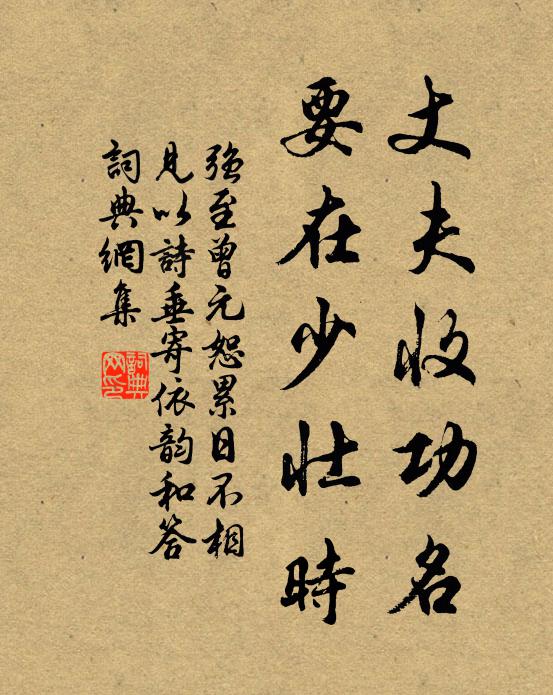 丈夫收功名
要在少壯時
強至曾元恕累日不相
見以詩垂寄依韵和答
詞典網集
詞典
网印